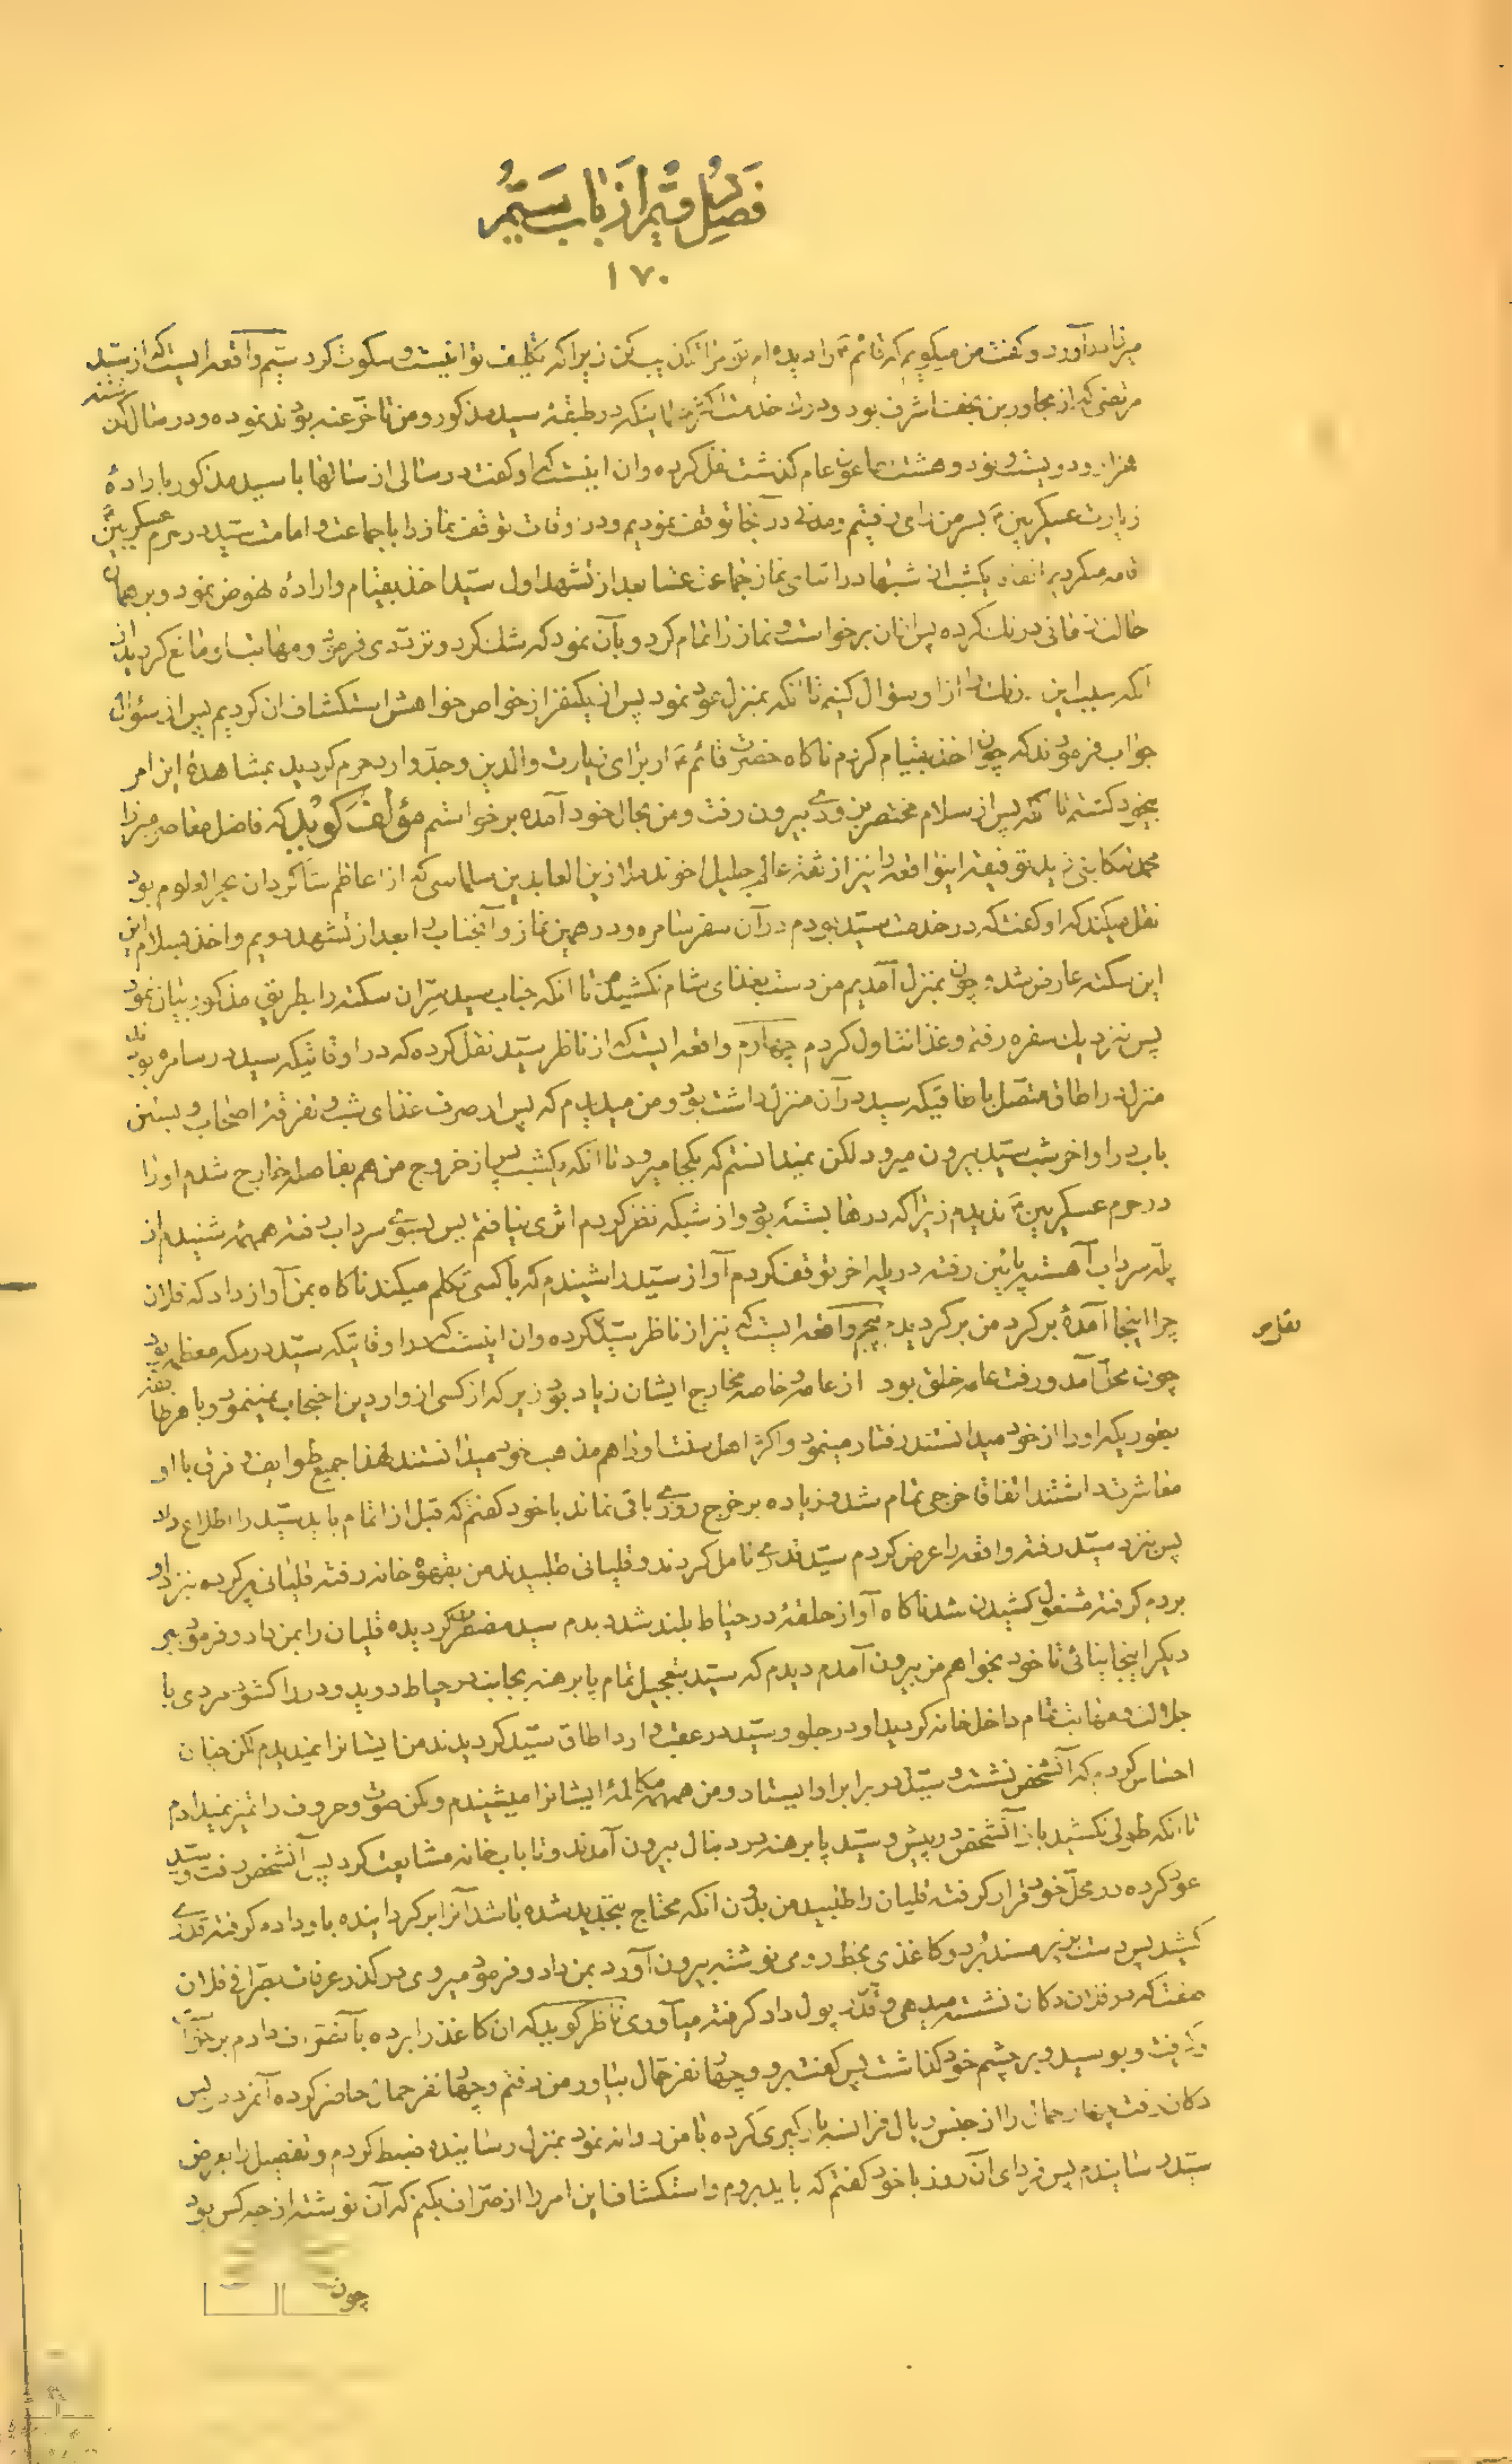 فصل دویم از باب سیم
۱۷۰
آورد و گفت من میگویم که قائم ع را دیده ام تو مرا تکذیب کن زیرا که تکلیف تو اینست و سکوت کرد سیم واقعه ایست که از سید
مرتضی که از مجاورین نجف اشرف بود و درک خدمت اکثر مشایخ که در طبقه سید مذکور و من تأخر عنه بودند نموده و در سال
هزار و دویست و نود و هشت بطاعون عام گذشت نقل کرده و ان اینست که او گفت در سالی از سالها با سید مذکور باراده
زیارت عسکریین ع بسر من رای رفتیم و مدتی در آنجا توقف نمودیم و در اوقات توقف نماز را با جماعت و امامت سید در حرم عسکریین ع
اقامه میکردیم اتفاقا یکشب از شبها در اثنای نماز جماعت عشا بعد از تشهد اول سید اخذ بقیام و اراده نهوض نمود و بر همان
حالت زمانی درنگ کرده پس از ان برخواست و نماز را تمام کرد و بآن نمود که شک کرد و تردی فرمود و مهابت او مانع گردید از
آنکه سبب این درنگ را از او سؤال کنیم تا انکه بمنزل عود نمود پس از یکنفر از خواص خواهش استکشاف ان کردیم پس از سؤال
جواب فرمودند که چون اخذ بقیام کردم ناگاه حضرت قائم ع از برای زیارت والدین و جد وارد حرم گردید بمشاهده این امر
بیخود گشتم تا آنکه پس از سلام مختصر بیرون رفت و من بحال خود آمده برخواستم مؤلف گوید که فاضل معاصر میرزا
محمد تنکابنی زید توفیقه اینواقعه را نیز از ثقه عالم جلیل اخوند ملا زین العابدین سلماسی که از اعاظم شاگردان بحر العلوم بود
نقل میکند که او گفت که در خدمت سید بودم در آن سفر سامره و در همین نماز و آنجناب را بعد از تشهد دویم و اخذ بسلام این
این سکته عارض شد و چون بمنزل آمدیم من دست بغذای شام نکشیدم تا انکه جناب سید سر ان سکته را بطریق مذکور بیان نمود
پس نزدیک سفره رفته و غذا تناول کردم چهارم واقعه ایست که از ناظر سید نقل کرده که در اوقاتیکه سید در سامره بود
منزل در اطاق متصل باطاقیکه سید در آن منزل داشت بود و من میدیدم که پس از صرف غذای شب و تفرقه اصحاب و بستن
باب در اواخر شب سید بیرون میرود لکن نمیدانستم که بکجا میرود تا انکه یکشب پس از خروج من هم بفاصله خارج شدم او را
در حرم عسکریین ع ندیدم زیرا که درها بسته بود و از شبکه نظر کردم اثری نیافتم پس بسوی سرداب رفته همهمه شنیدم از
پله سرداب آهسته پائین رفته در پله اخر توقف کردم آواز سید را شنیدم که با کسی تکلم میکند ناگاه بمن آواز داد که فلان
چرا اینجا آمده برگرد من برگردیدم پنجم واقعه ایست که نیز از ناظر سید نقل کرده و ان اینست که در اوقاتیکه سید در مکه معظمه بود
چون محل آمد و رفت عامه خلق بود از عامه و خاصه مخارج ایشان زیاد بود زیرا که از کسی از واردین احتجاب نمینمود و با هر طایفه
بطوریکه او را از خود میدانستند رفتار مینمود و اکثر اهل سنت او را هم مذهب خود میدانستند لهذا جمیع طوایف و فرق با او
معاشرت داشتند اتفاقا خرجی تمام شد و زیاده بر خرج روزی باقی نماند با خود گفتم که قبل از اتمام باید سید را اطلاع داد
پس نزد سید رفته واقعه را عرض کردم سید قدری تامل کردند و قلیانی طلبیدند من بقهوه خانه رفته قلیانی پر کرده نزد او
بردم گرفته مشغول کشیدن شد ناگاه آواز حلقه در حیاط بلند شد دیدم سید مضطرب گردیده قلیان را بمن داد و فرمود ببر
دیگر اینجا نیائی تا خود بخواهم من بیرون آمدم دیدم که سید بتعجیل تمام پا برهنه بجانب در حیاط دوید و در را گشود مردی با
جلالت و مهابت تمام داخل خانه گردید او در جلو و سید در عقب وارد اطاق سید گردیدند من ایشانرا نمیدیدم لکن چنان
احساس کردم که آنشخص نشست و سید در برابر او ایستاد و من همهمه مکالمه ایشانرا میشنیدم و لکن صوت و حروف را تمیز نمیدادم
تا انکه طولی نکشید باز آنشخص در پیش و سید پا برهنه در دنبال بیرون آمدند و تا باب خانه مشایعت کرد پس آنشخص رفت و سید
عود کرده در محل خود قرار گرفته قلیان را طلبید من بدون انکه محتاج بتجدید شده باشد آنرا برگردانیده باو داده گرفته قدری
کشید پس دست بزیر مسند برد و کاغذی بخط رومی نوشته بیرون آورد بمن داد و فرمود میروی در گذر عرفات بصرافی فلان
صفت که در فلان دکان نشسته میدهی و قدری پول داد گرفته میآوری ناظر گوید که ان کاغذ را برده بآنصراف دادم برخواست
گرفت و بوسید و بر چشم خود گذاشت پس گفت برو و چهار نفر حمال بیاور من رفتم و چهار نفر حمال حاضر کرده آنمرد در پس
دکان رفت چهار حمال را از جنس ریال فرانسه بارگیری کرده با من روانه نمود بمنزل رسانیده ضبط کردم و تفصیل را بعرض
سید رسانیدم پس فردای آن روز با خود گفتم که باید بروم و استکشاف این امر را از صراف بکنم که آن نوشته از چه کس بود
چون